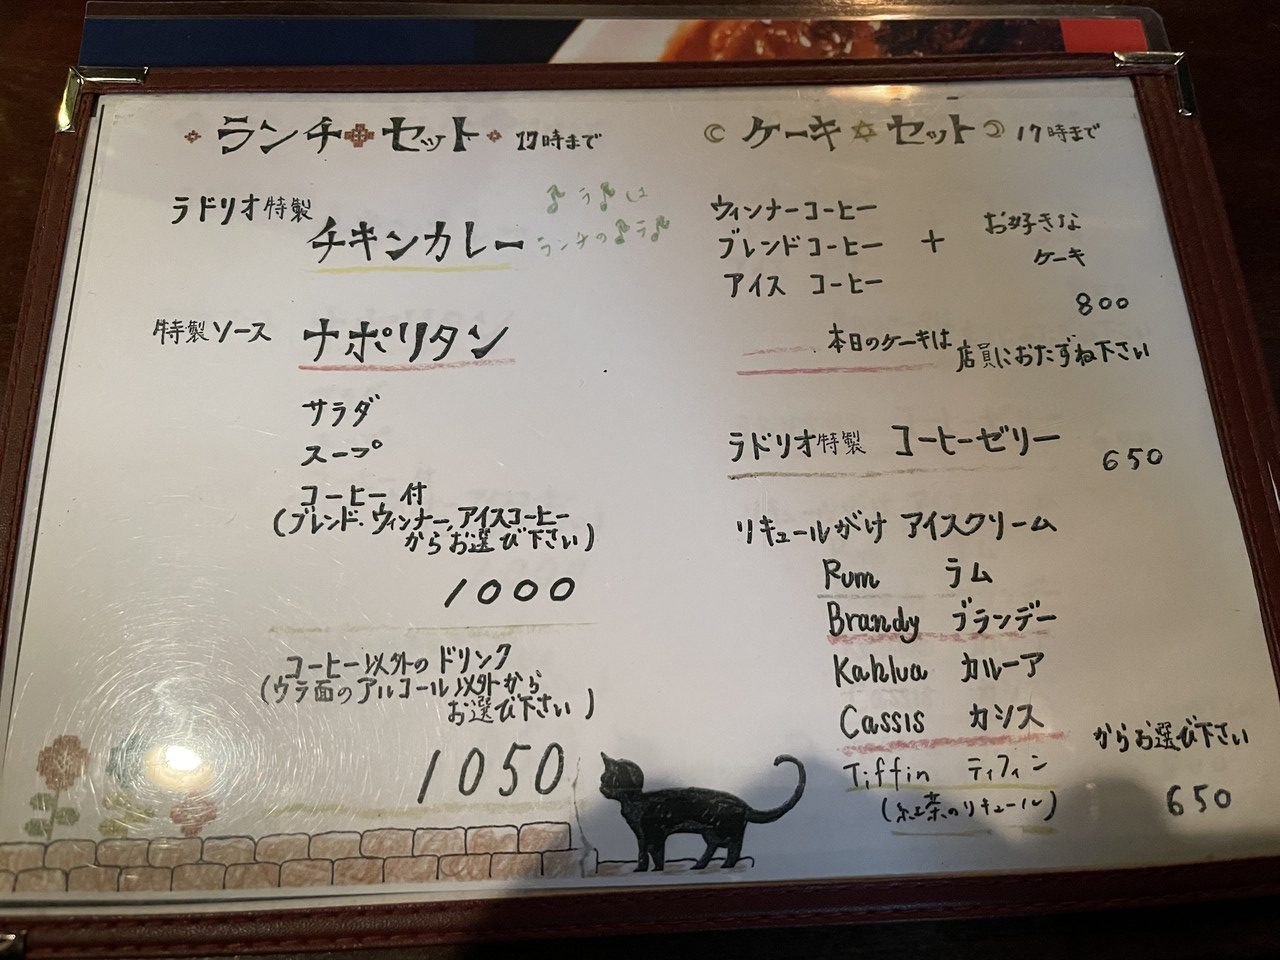 ランチセット 17時まで
ラドリオ特製
チキンカレー
♪ラ♪は
ランチの♪ラ♪
特製ソース ナポリタン
サラダ
スープ
コーヒー付
(ブレンド、ウィンナー、アイスコーヒー
からお選び下さい)
1000
コーヒー以外のドリンク
(ウラ面のアルコール以外から
お選び下さい)
1050
ケーキセット 17時まで
ウィンナーコーヒー
ブレンドコーヒー
アイスコーヒー
+
お好きな
ケーキ
800
本日のケーキは
店員におたずね下さい
ラドリオ特製 コーヒーゼリー
650
リキュールがけ アイスクリーム
Rum ラム
Brandy ブランデー
Kahlua カルーア
Cassis カシス
Tiffin ティフィン
(紅茶のリキュール)
からお選び下さい
650